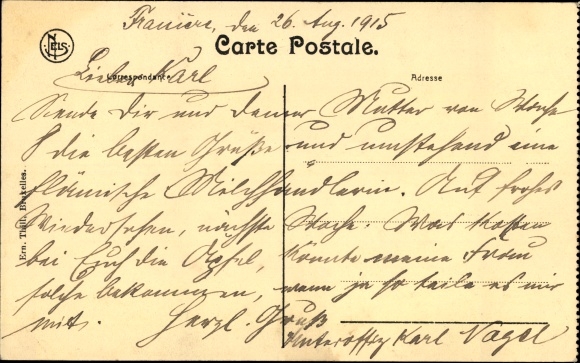 Franière, den 26. Aug. 1915
NELS
Carte Postale.
Correspondance
Adresse
Lieber Karl
Sende Dir und Deiner Mutter von Woche
die besten Grüße und umstehend eine
flämische Milchhändlerin. Auf frohes
Wiedersehen, nächste Woche. Was kosten
bei Euch die Äpfel, könnte meine Frau
solche bekommen, wenn ja so teile es mir
mit. Herzl. Gruß
Unteroffz Karl Vagel
Ern. Thill, Bruxelles.